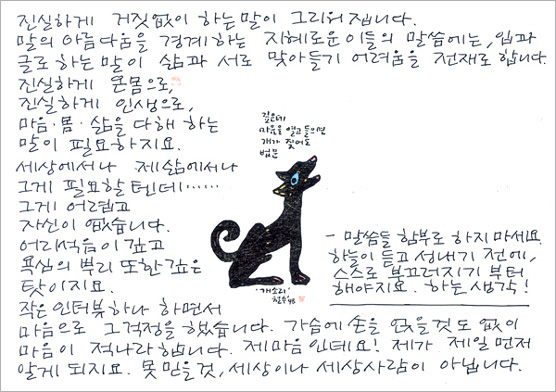 진실하게 거짓없이 하는 말이 그리워집니다.
말의 아름다움을 경계하는 지혜로운 이들의 말씀에는, 입과
글로 하는 말이 삶과 서로 맞아들기 어려움을 전재로 합니다.
진실하게 온몸으로,
진실하게 인생으로,
마음·몸·삶을 다해 하는
말이 필요하지요.
세상에서나 제 삶에서나
그게 필요할 텐데……
그게 어렵고
자신이 없습니다.
어리석음이 깊고
욕심의 뿌리 또한 깊은
탓이지요.
작은 인터뷰 하나 하면서
마음으로 그 걱정을 했습니다. 가슴에 손을 얹을 것도 없이
마음이 적나라합니다. 제 마음인데요! 제가 제일 먼저
알게 되지요. 못 믿을 것, 세상이나 세상사람이 아닙니다.
짖은데
마음을 열고 들으면
개가 짖어도
법문
'개소리'
철수 '98
- 말씀들 함부로 하지 마세요.
하늘이 듣고 성내기 전에,
스스로 부끄러지기부터
해야지요. 하는 생각!